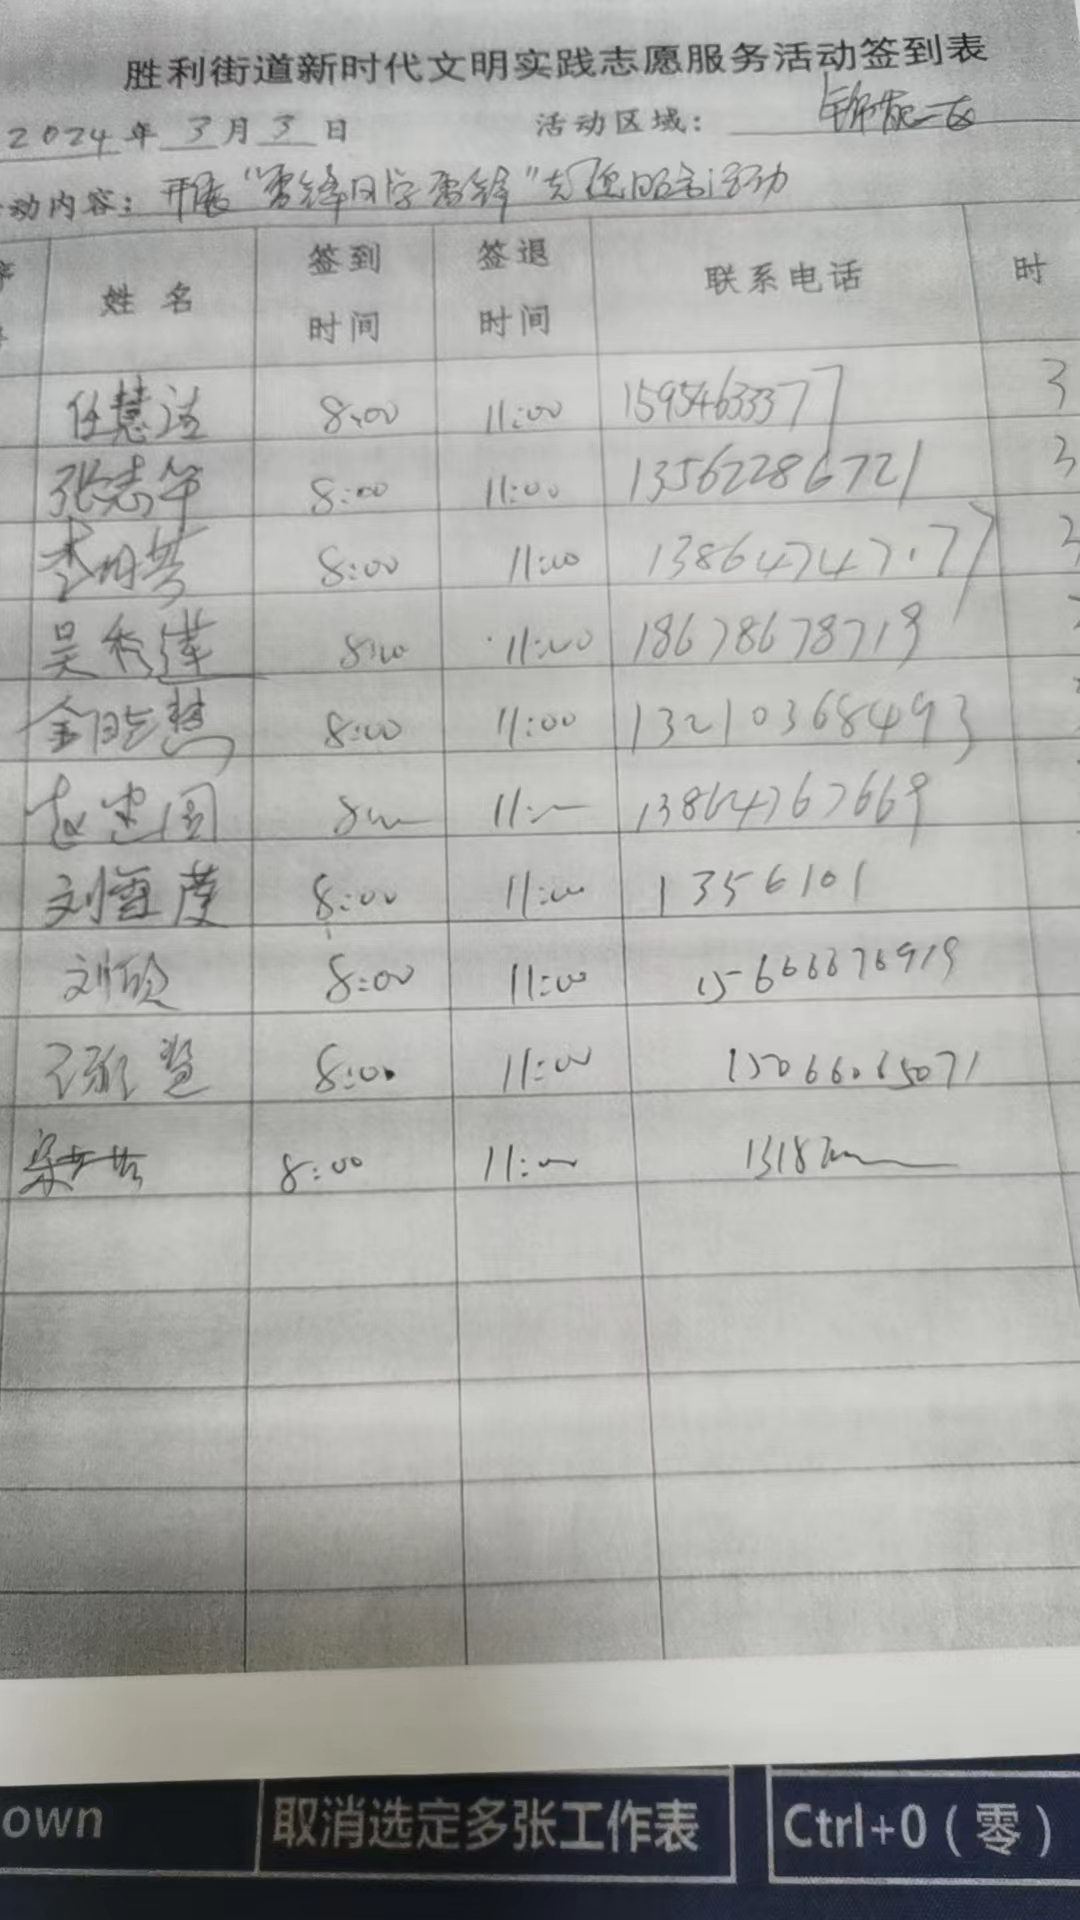 胜利街道新时代文明实践志愿服务活动签到表
2024年 3月 3日 活动区域: 锦苑二区
动内容: 开展"雷锋月学雷锋"志愿服务活动
姓 名 签到时间 签退时间 联系电话 时
任慧洁 8:00 11:00 15954633377 3
张志华 8:00 11:00 13562286721 3
李 8:00 11:00 13864747077 3
吴秀莲 8:00 11:00 18678678719
金晓慧 8:00 11:00 13210368493
赵忠国 8:00 11:00 13864767669
刘雪 8:00 11:00 1356101
刘欣 8:00 11:00 15666676919
8:00 11:00 15066065071
宋 8:00 11:00 1318
own 取消选定多张工作表 Ctrl+0（零）